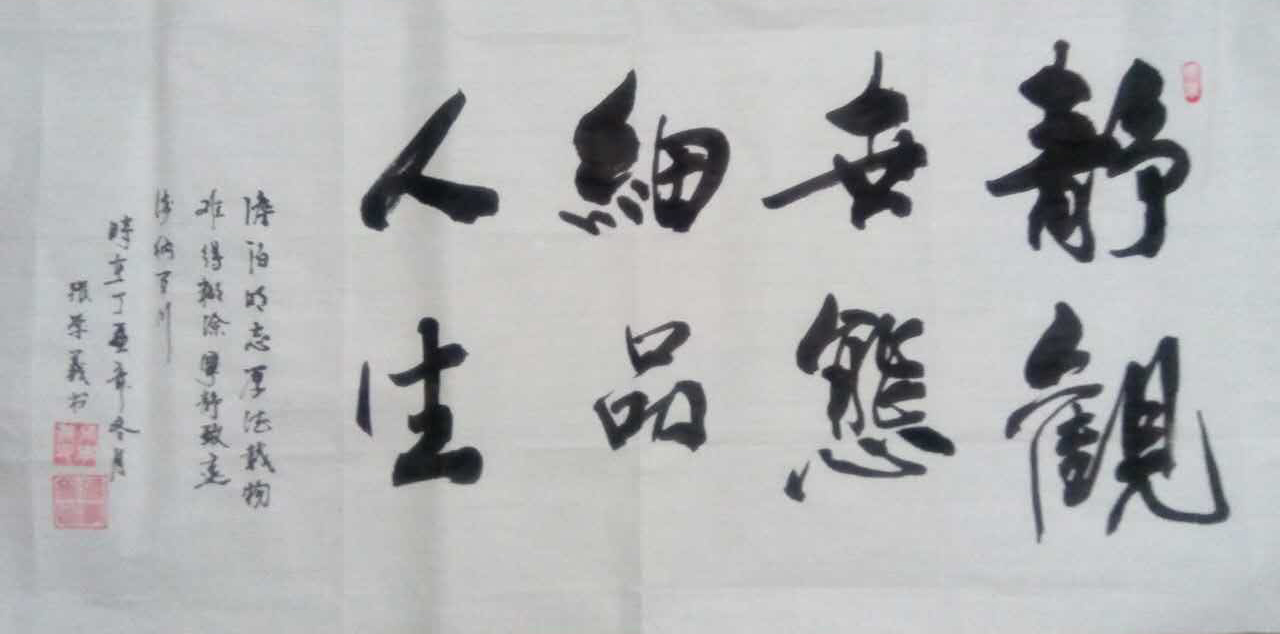 靜觀
世態
細品
人生
澹泊明志厚德載物
难得糊涂寧静致遠
海納百川
時在丁酉年冬月
張荣義书